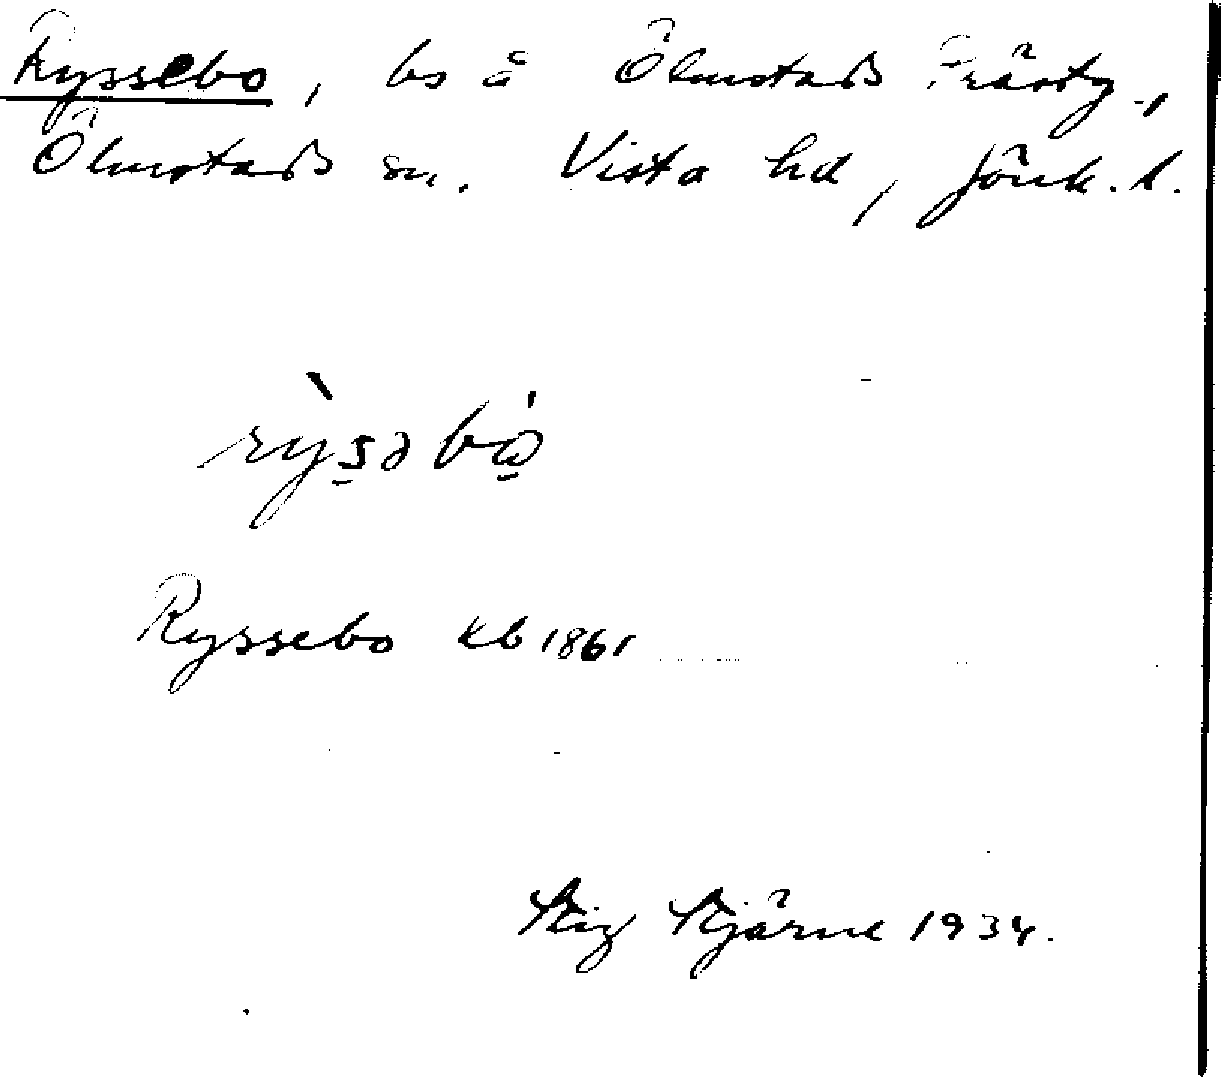 Ryssebo, bs å Ölmstads Prästg.,
Ölmstads sn. Vista hd, Jönk. l.
rỳsəbo̱
Ryssebo kb 1861
Stig Stjärne 1934.